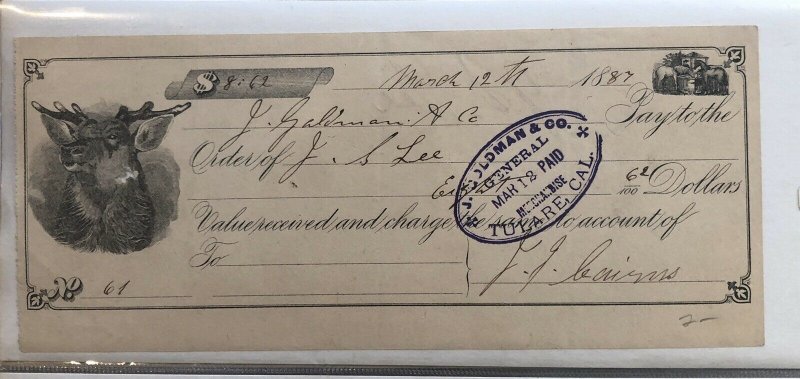 $ 8:62 March 12th 1887
J. Goldman & Co Pay to the
Order of J. S Lee
62/100 Dollars
Value received and charge the same to account of
To
No 61 J. J. Cairns
J. GOLDMAN & CO.
GENERAL
MAR 12 PAID
MERCHANDISE
TULARE, CAL.